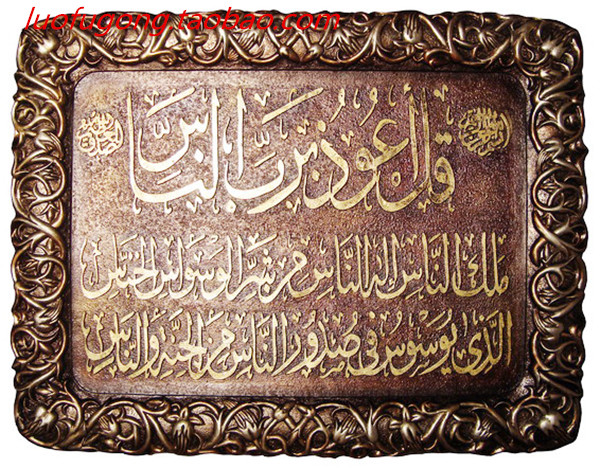 luofugong.taobao.com
قل أعوذ برب الناس
ملك الناس اله الناس من شر الوسواس الخناس
الذى يوسوس فى صدور الناس من الجنة والناس